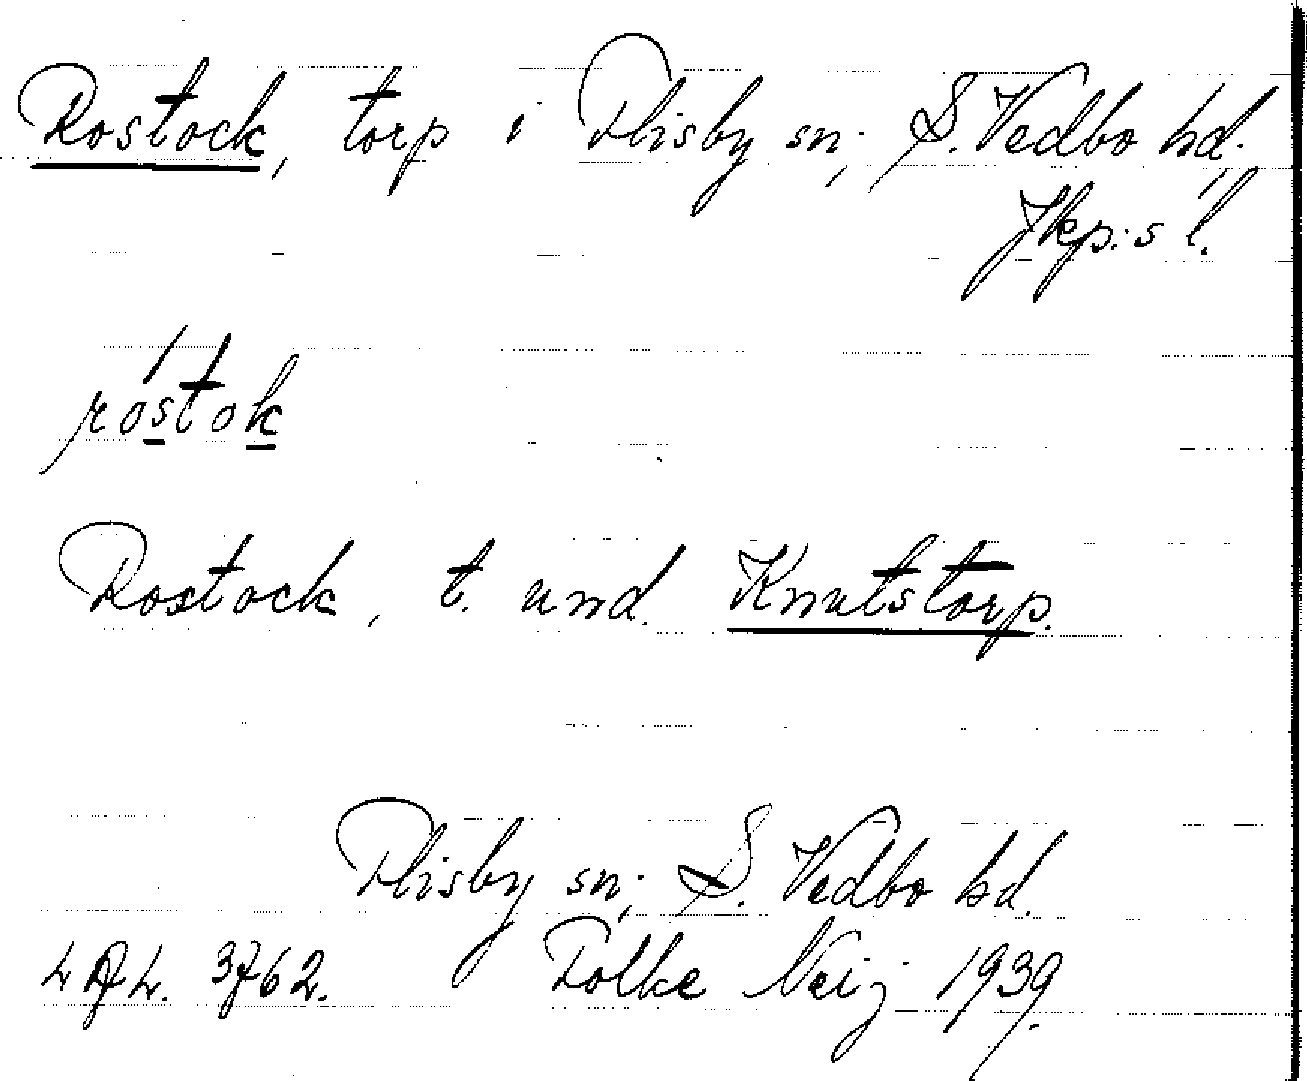 Rostock, torp i Flisby sn; S. Vedbo hd.
Jkp:s l.
rostok
Rostock, t. und. Knutstorp.
Flisby sn; S. Vedbo hd.
3762. Folke Neij 1939.